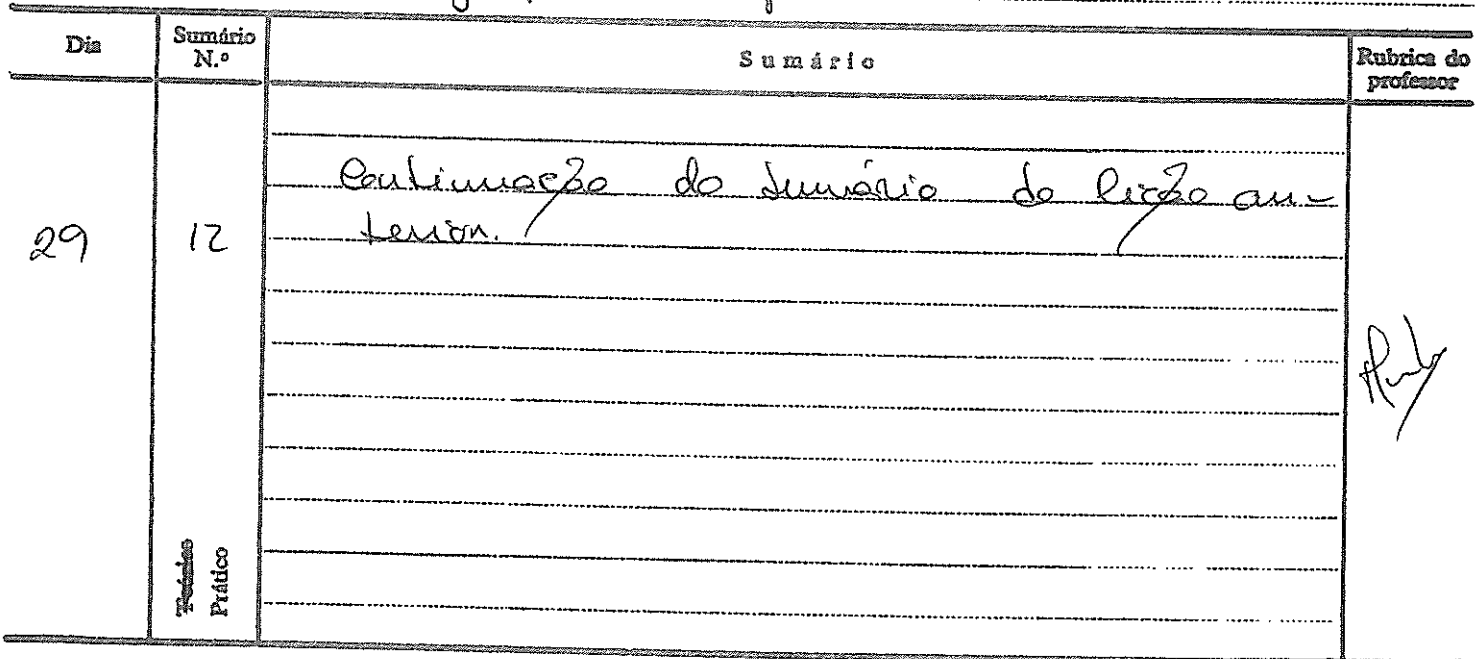 Dia
Sumário N.º
Sumário
Rubrica do professor
29
12
Continuação do sumário da lição an-
terior.
Teórico
Prático